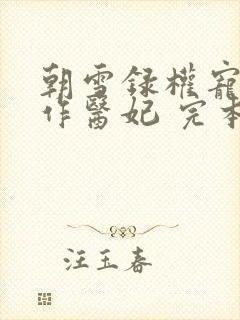 朝雪録權寵
作醫妃 完本
汪玉春